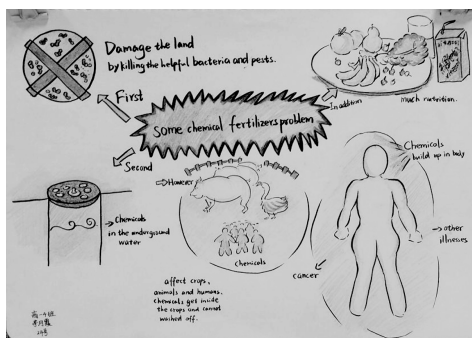 Damage the land
by killing the helpful bacteria and pests.
First
some chemical fertilizers problem
In addition
much nutrition.
Second
However
Chemicals
in the underground
water
chemicals
affect crops,
animals and humans.
chemicals get inside
the crops and cannot
washed off.
Chemicals
build up in body
other
illnesses
cancer